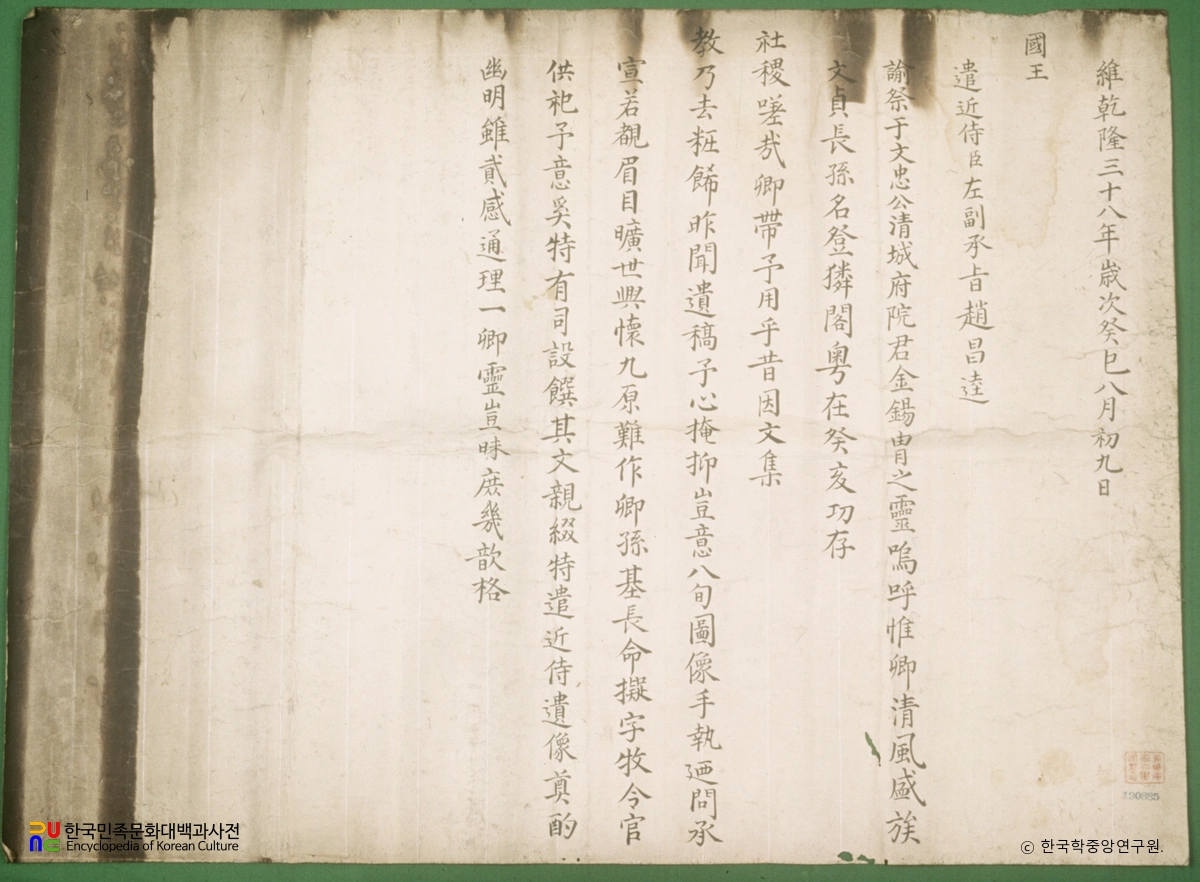 維乾隆三十八年歲次癸巳八月初九日
國王
遣近侍臣左副承旨趙昌逵
諭祭于文忠公清城府院君金錫胄之靈嗚呼惟卿清風盛族
文貞長孫名登獜閣粤在癸亥功存
社稷嗟哉卿帶予用乎昔因文集
教乃去粧餙昨聞遺稿予心掩抑豈意八旬圖像手執廼問承
宣若覩眉目曠世興懷九原難作卿孫基長命擬字牧令官
供祀予意奚特有司設饌其文親綴特遣近侍遺像奠酌
幽明雖貳感通理一卿靈豈昧庶幾歆格
190885
한국민족문화대백과사전
Encyclopedia of Korean Culture
ⓒ 한국학중앙연구원.